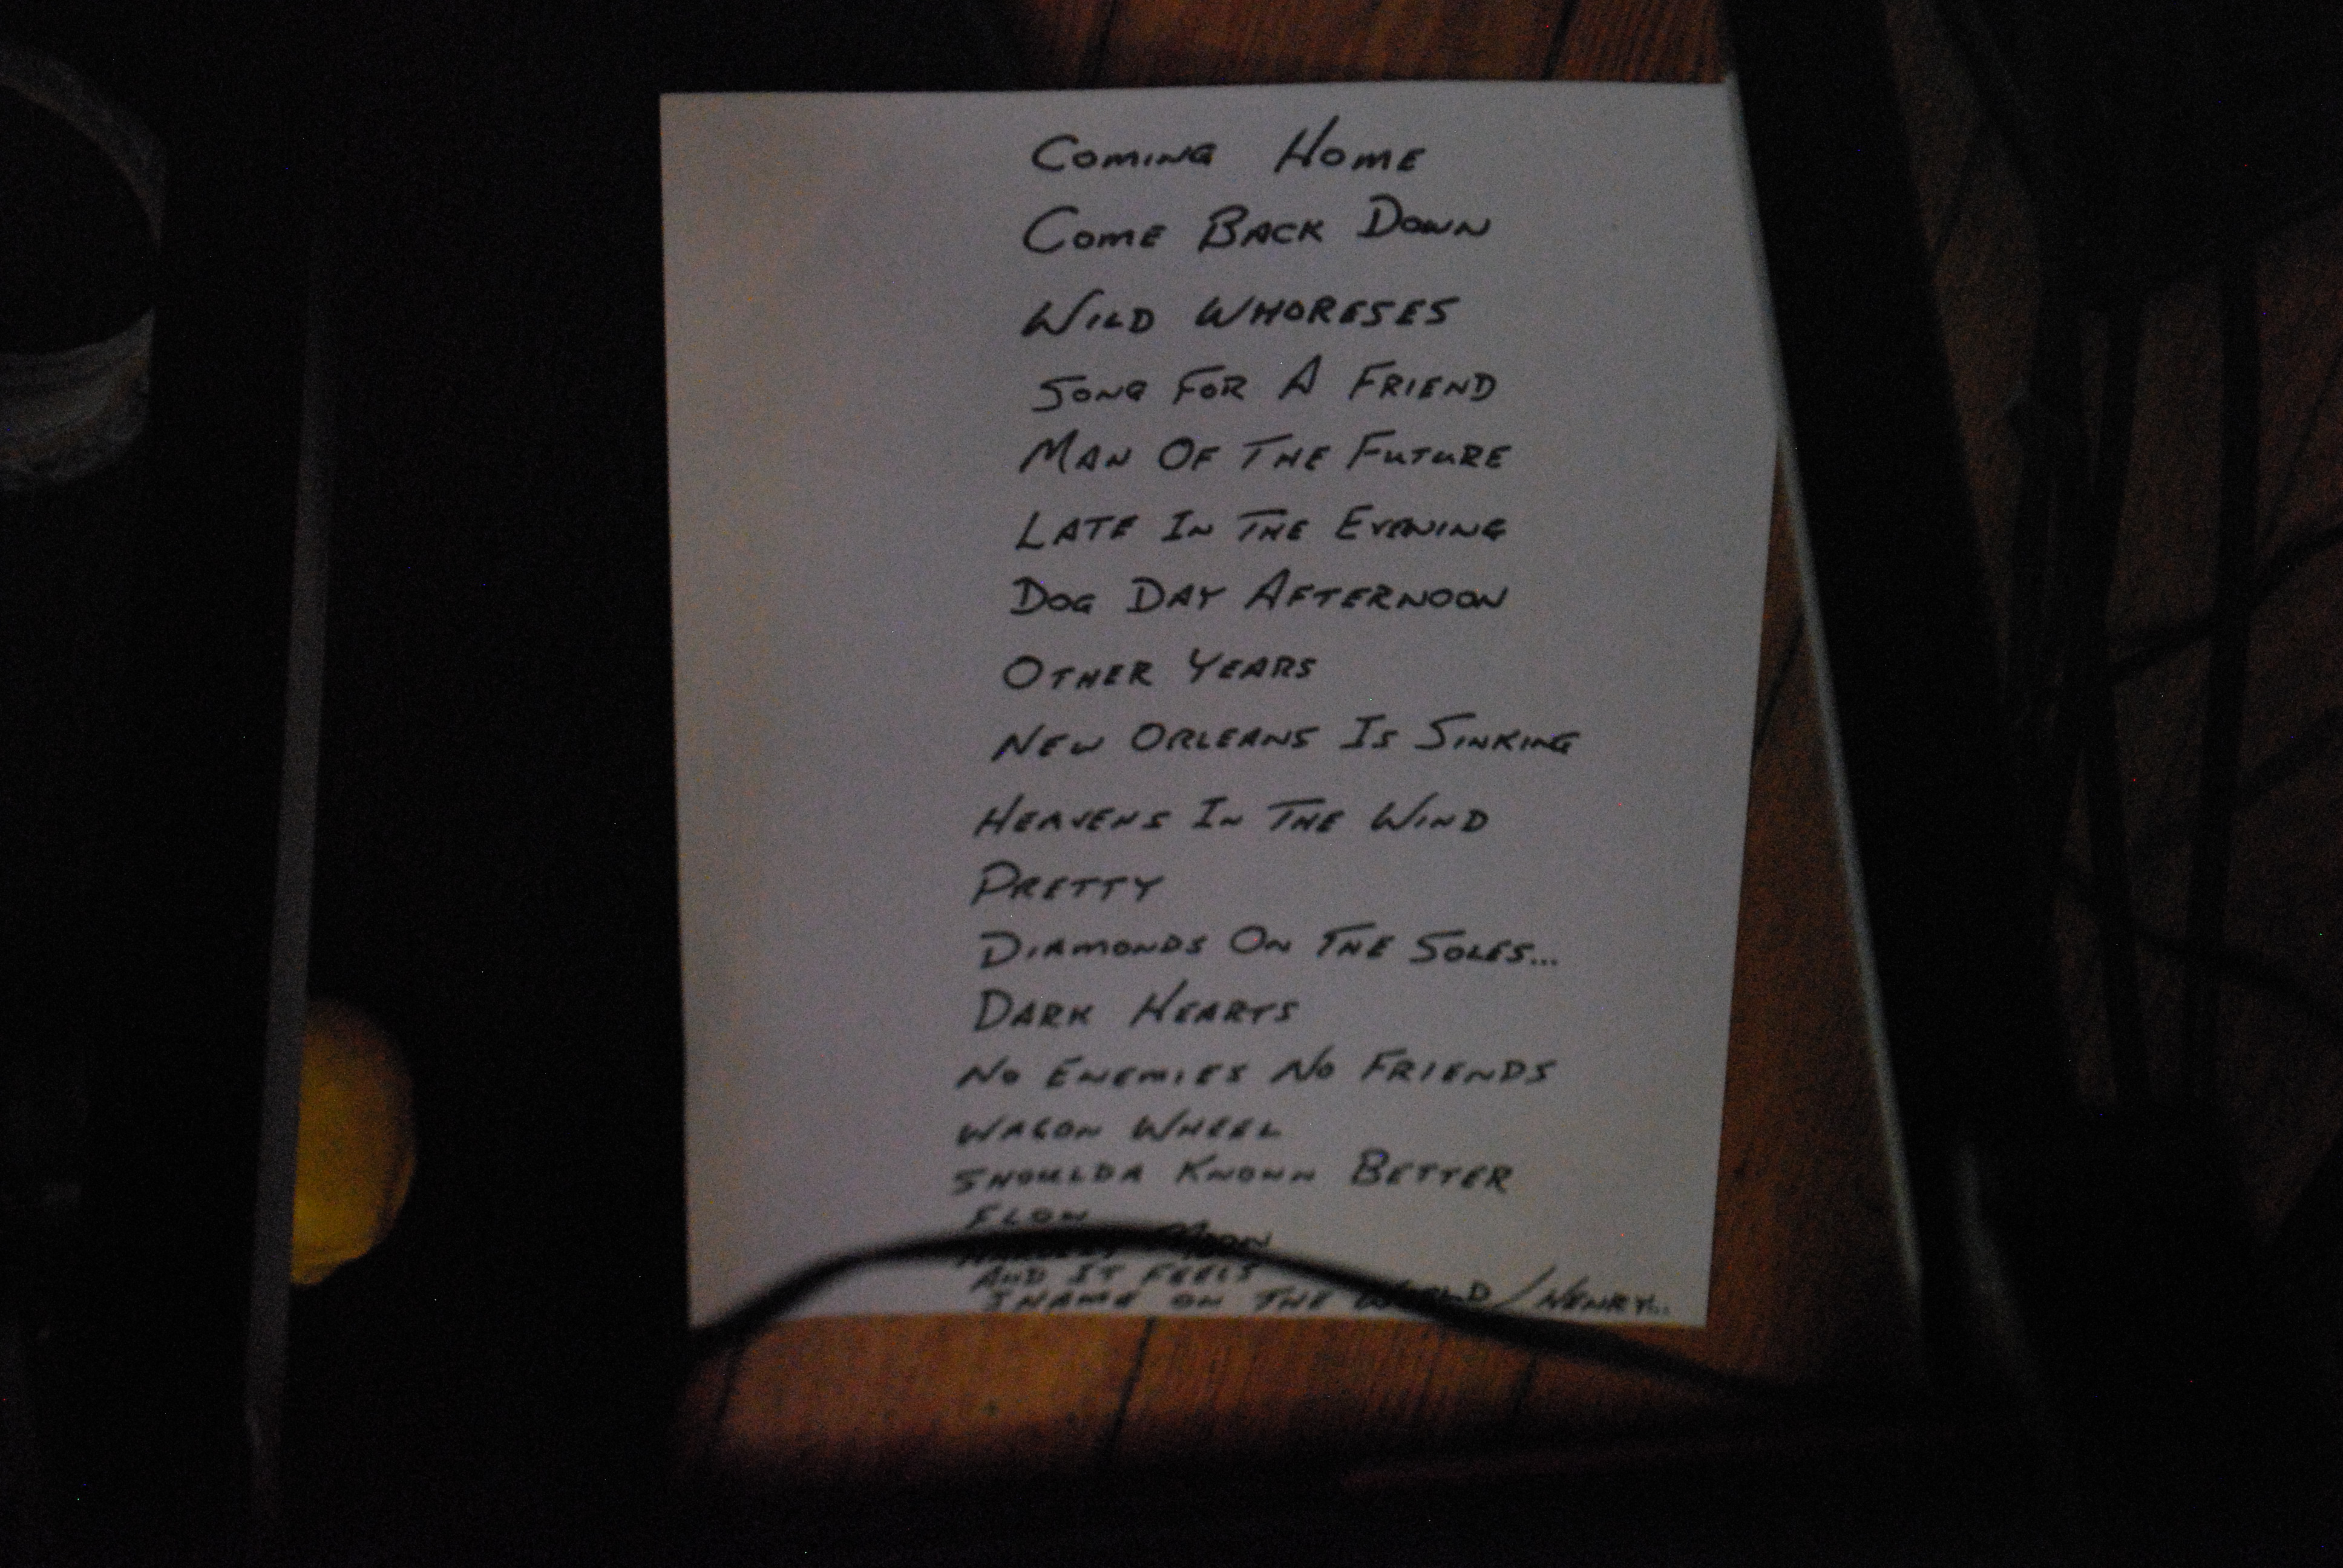 COMING HOME
COME BACK DOWN
WILD WHORESES
SONG FOR A FRIEND
MAN OF THE FUTURE
LATE IN THE EVENING
DOG DAY AFTERNOON
OTHER YEARS
NEW ORLEANS IS SINKING
HEAVENS IN THE WIND
PRETTY
DIAMONDS ON THE SOLES...
DARK HEARTS
NO ENEMIES NO FRIENDS
WAGON WHEEL
SHOULDA KNOWN BETTER
FLOW
MOON
AND IT FEELS
SHAME ON THE WORLD / HENRY...